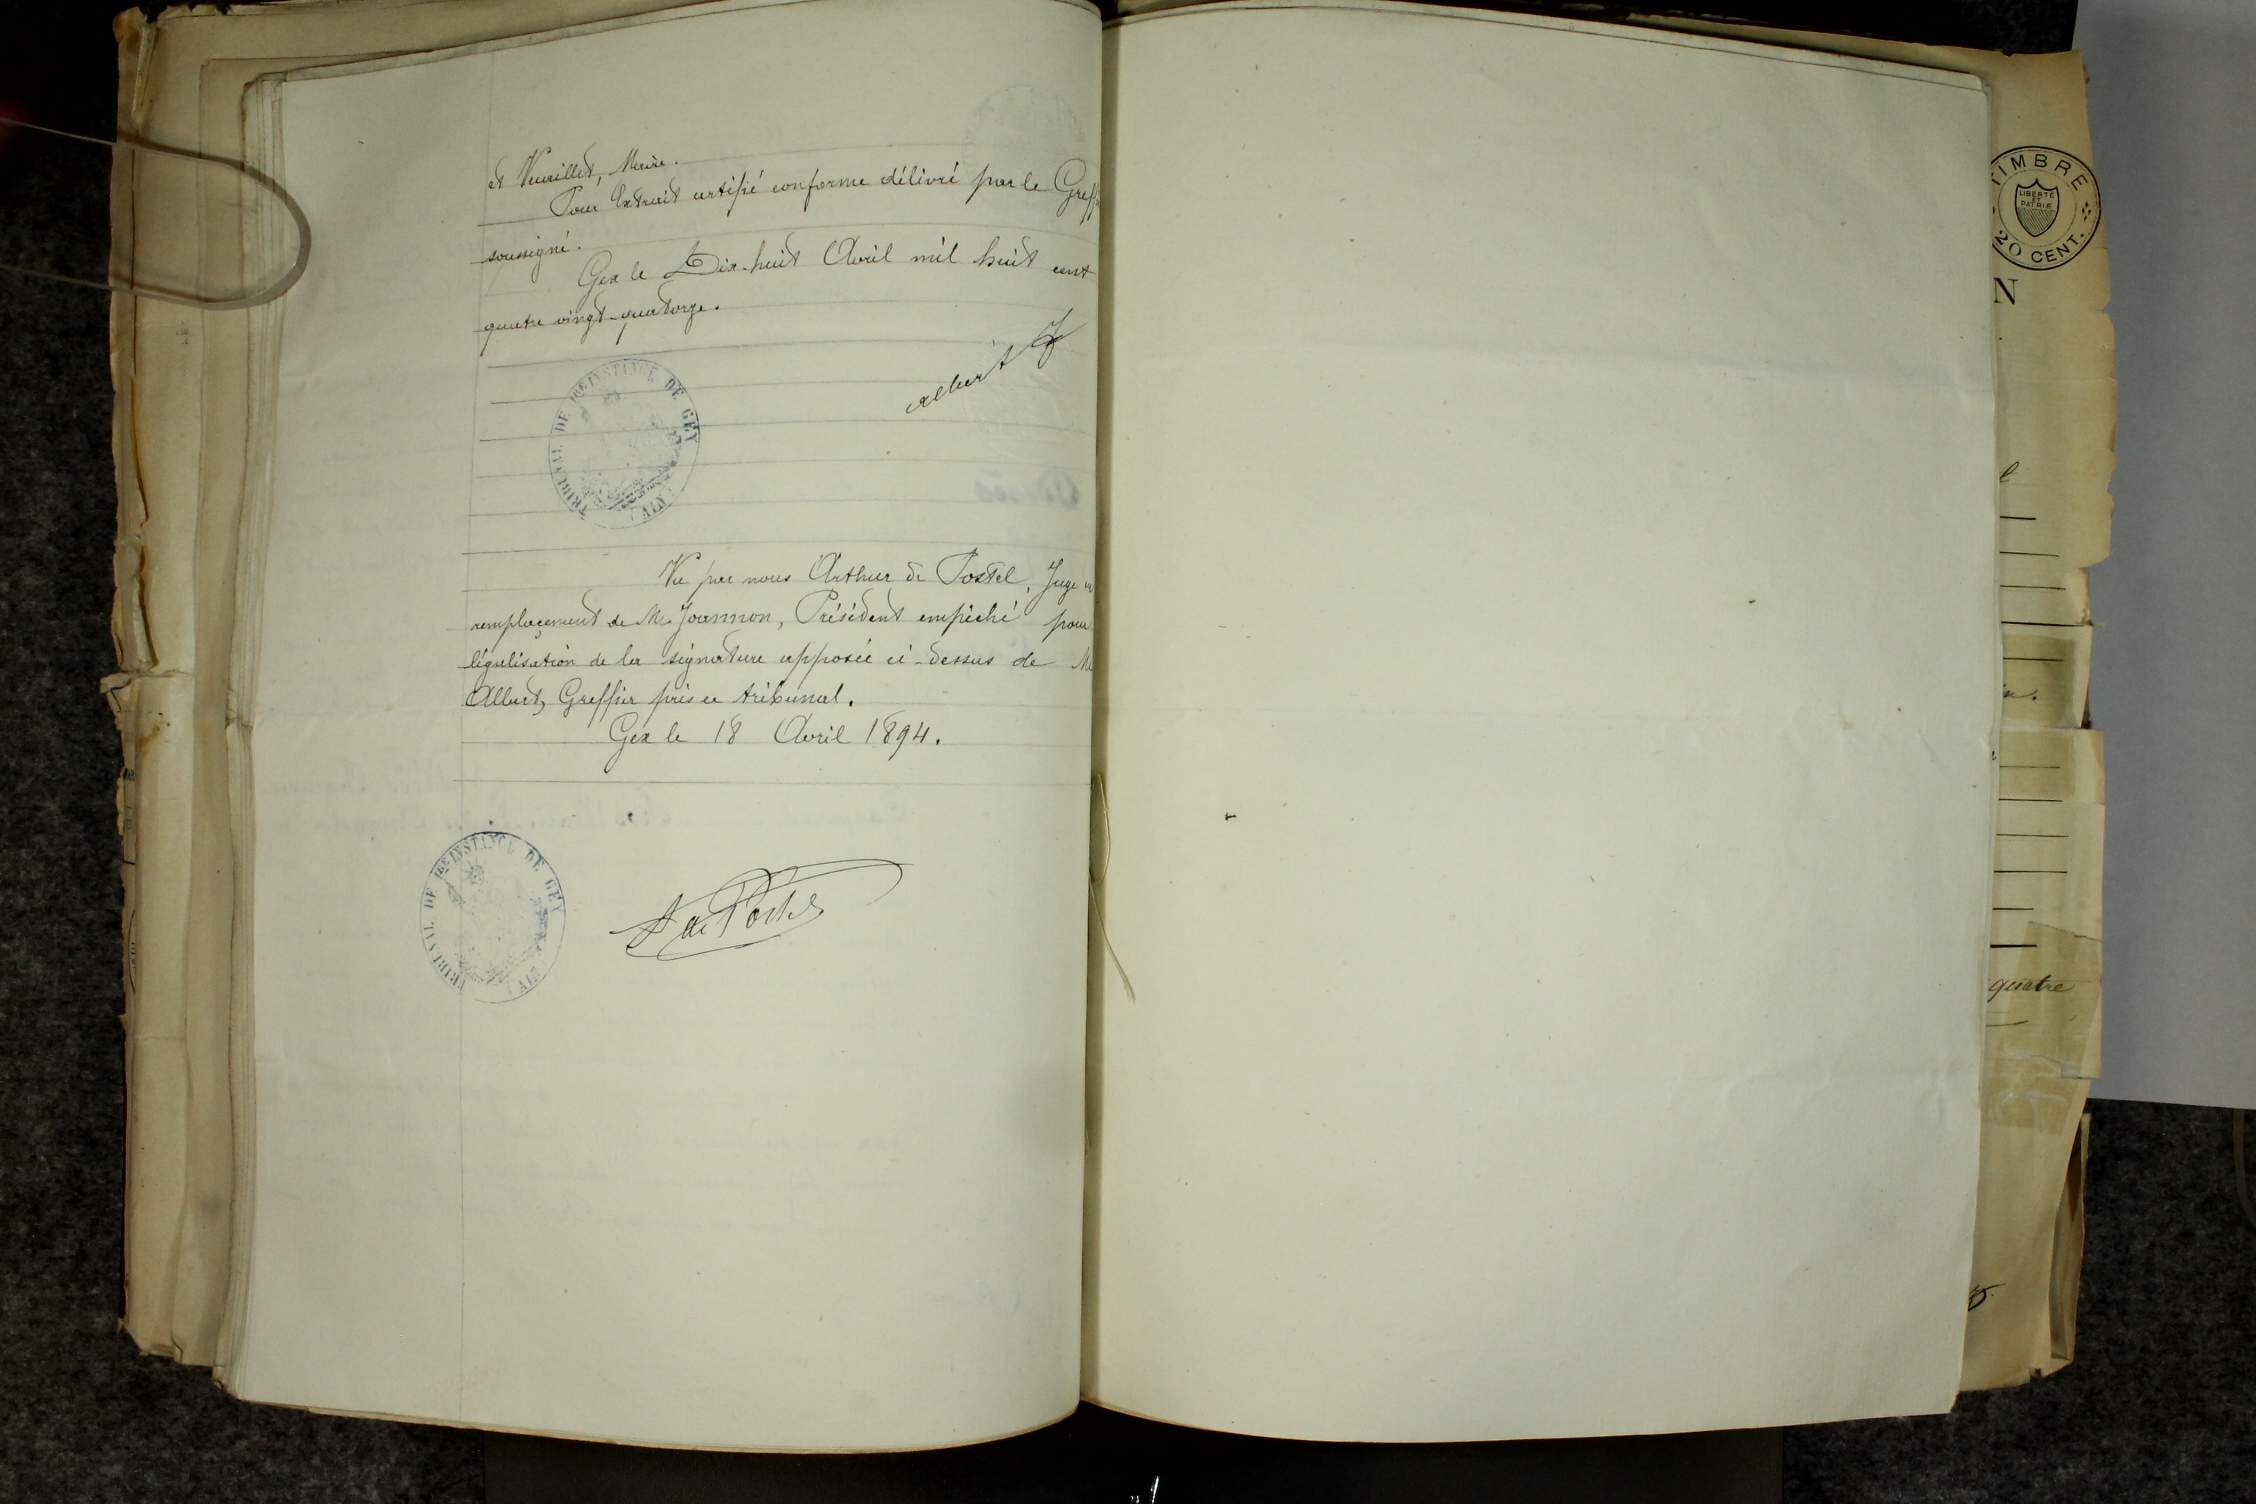 et Vuaillet, Maire.
Pour Extrait certifié conforme délivré par le Greff
soussigné.
Gex le Dix-huit Avril mil huit cent
quatre vingt-quatorze.
Albert
TRIBUNAL DE 1RE INSTANCE DE GEX (AIN)
Vu par nous Arthur de Postel, Juge en
remplacement de Mr Joannon, Président empêché pour
légalisation de la signature apposée ci-dessus de Me
Albert, Greffier près ce tribunal.
Gex le 18 Avril 1894.
TRIBUNAL DE 1RE INSTANCE DE GEX (AIN)
A de Postel
TIMBRE
LIBERTÉ
ET
PATRIE
20 CENT.
N
quatre